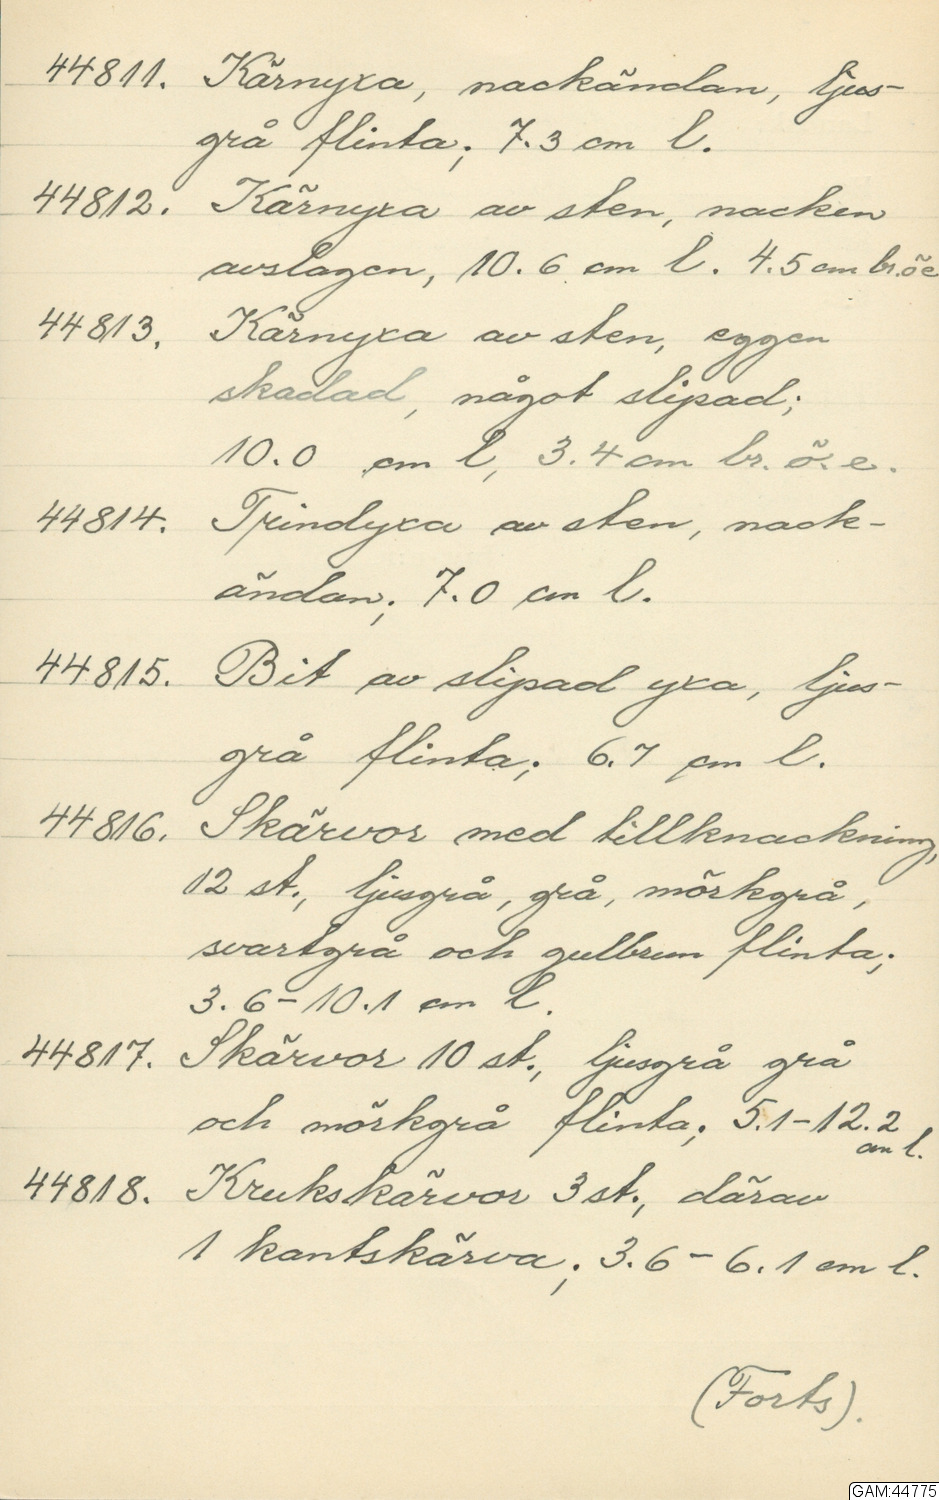 44811. Kärnyxa, nackändan, ljus-
grå flinta; 7.3 cm l.
44812. Kärnyxa av sten, nacken
avslagen, 10.6 cm l. 4.5 cm br. ö e
44813. Kärnyxa av sten, eggen
skadad, något slipad;
10.0 cm l, 3.4 cm br. ö. e.
44814. Trindyxa av sten, nack-
ändan; 7.0 cm l.
44815. Bit av slipad yxa, ljus-
grå flinta; 6.7 cm l.
44816. Skärvor med tillknackning,
12 st., ljusgrå, grå, mörkgrå,
svartgrå och gulbrun flinta;
3.6-10.1 cm l.
44817. Skärvor 10 st., ljusgrå grå
och mörkgrå flinta; 5.1-12.2
cm l.
44818. Krukskärvor 3 st., därav
1 kantskärva; 3.6-6.1 cm l.
(Forts).
GAM:44775